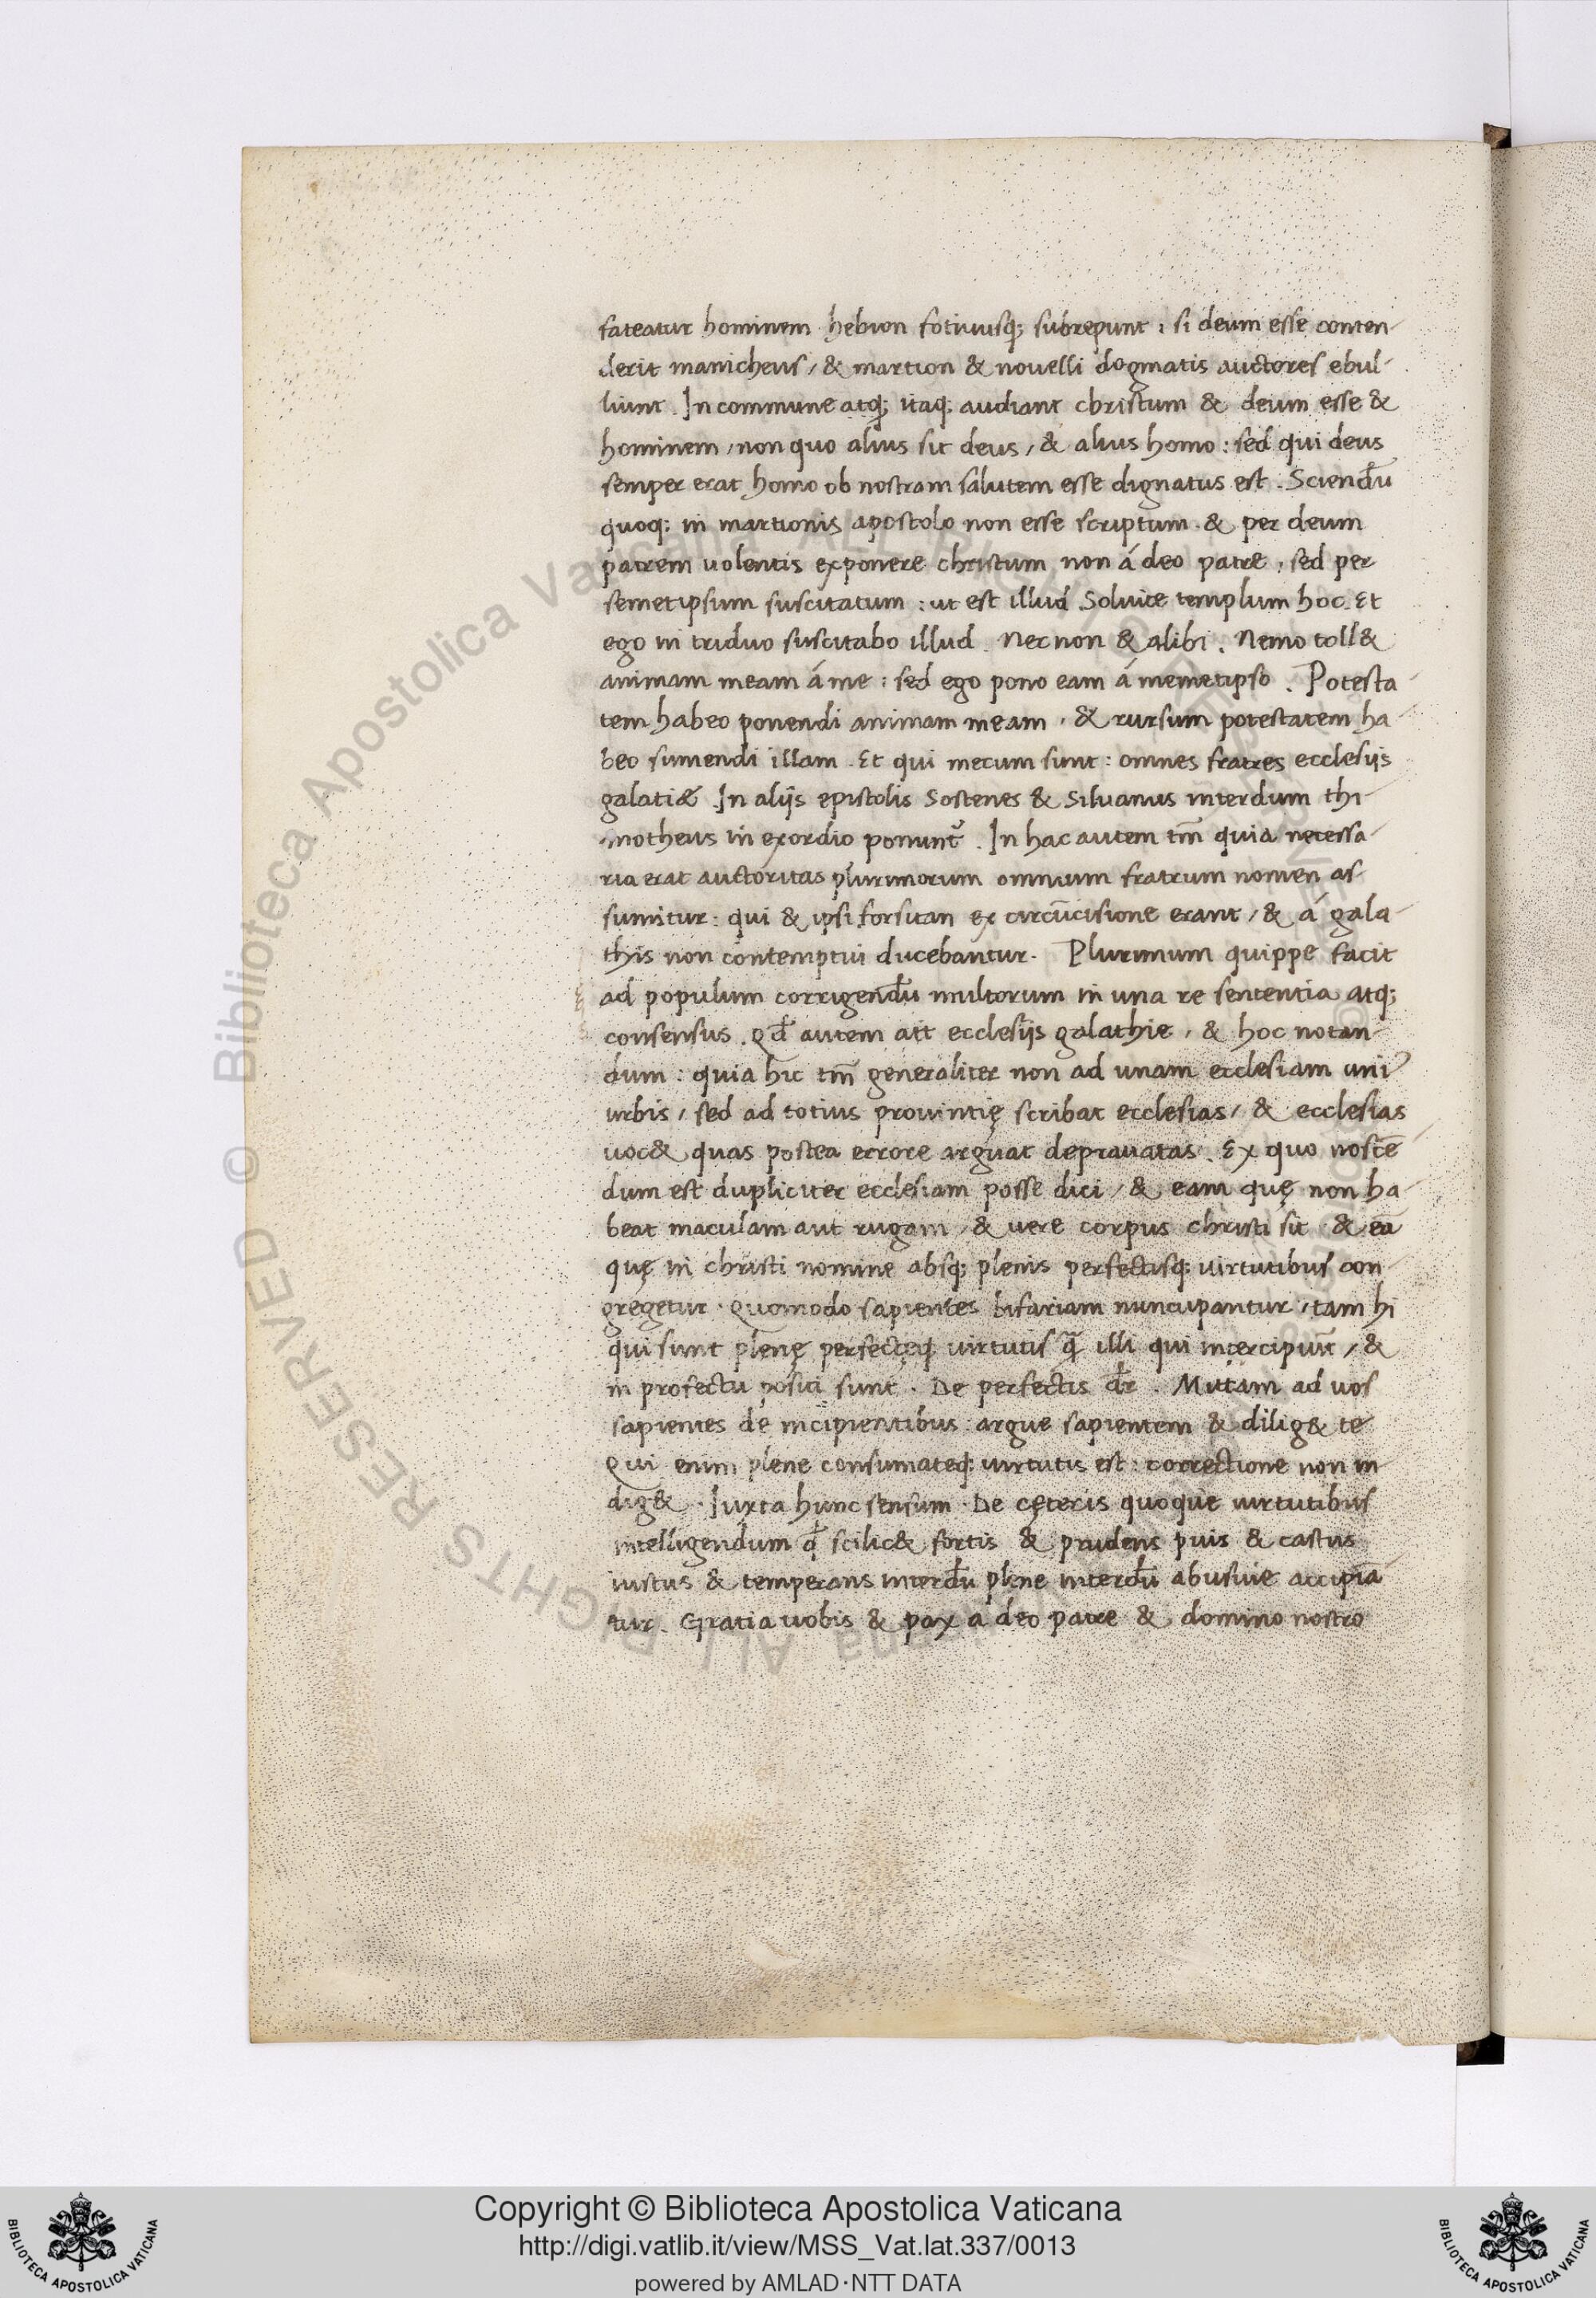 fateatur hominem hebion fotiniusq; subrepunt: si deum esse conten-
derit manicheus / & martion & nouelli dogmatis auctores ebul-
liunt. In commune atq; itaq; audiant christum & deum esse &
hominem / non quo alius sit deus / & alius homo: sed qui deus
semper erat homo ob nostram salutem esse dignatus est. Sciendū
quoq; in martionis apostolo non esse scriptum. & per deum
patrem uolentis exponere christum non á deo patre, sed per
semetipsum suscitatum: ut est illud. Soluite templum hoc. Et
ego in triduo suscitabo illud. Nec non & alibi. Nemo toll&
animam meam á me: sed ego pono eam á memetipso. Potesta-
tem habeo ponendi animam meam, & rursum potestatem ha-
beo sumendi illam. Et qui mecum sunt: omnes fratres ecclesijs
galatiæ. In alijs epistolis Sostenes & Siluanus interdum thi-
motheus in exordio ponunt᷑. In hac autem tm̄ quia necessa-
ria erat auctoritas plurimorum omnium fratrum nomen as-
sumitur: qui & ipsi forsitan ex circūcisione erant / & á gala-
this non contemptui ducebantur. Plurimum quippe facit
ad populum corrigendū multorum in una re sententia atq;
consensus. Qđ autem ait ecclesijs galathie, & hoc notan-
dum: quia hic tm̄ generaliter non ad unam ecclesiam uni᾽
urbis / sed ad totius prouintię scribat ecclesias / & ecclesias
uoc& quas postea errore arguat deprauatas. Ex quo noscē-
dum est dupliciter ecclesiam posse dici / & eam quę non ha-
beat maculam aut rugam / & uere corpus christi sit & eā
quę in christi nomine absq; plenis perfectisq; uirtutibus con-
gregetur. Quomodo sapientes bifariam nuncupantur, tam hi
qui sunt plenę perfectęq; uirtutis q̄ illi qui intercipiūt / &
in profectu positi sunt. De perfectis dr̄. Mutam ad uos
sapientes de incipientibus: argue sapientem & dilig& te
Qui enim plene consumateq; uirtutis est: correctione non in-
dig&. Iuxta hunc sensum. De cęteris quoque uirtutibus
intelligendum ꝙ scilic& fortis & prudens puis & castus
iustus & temperans interdū plene interdū abusiue accipiā-
tur. Gratia uobis & pax a deo patre & domino nostro
© Biblioteca Apostolica Vaticana ALL RIGHTS RESERVED
Copyright © Biblioteca Apostolica Vaticana
http://digi.vatlib.it/view/MSS_Vat.lat.337/0013
powered by AMLAD·NTT DATA
BIBLIOTECA APOSTOLICA VATICANA
BIBLIOTECA APOSTOLICA VATICANA